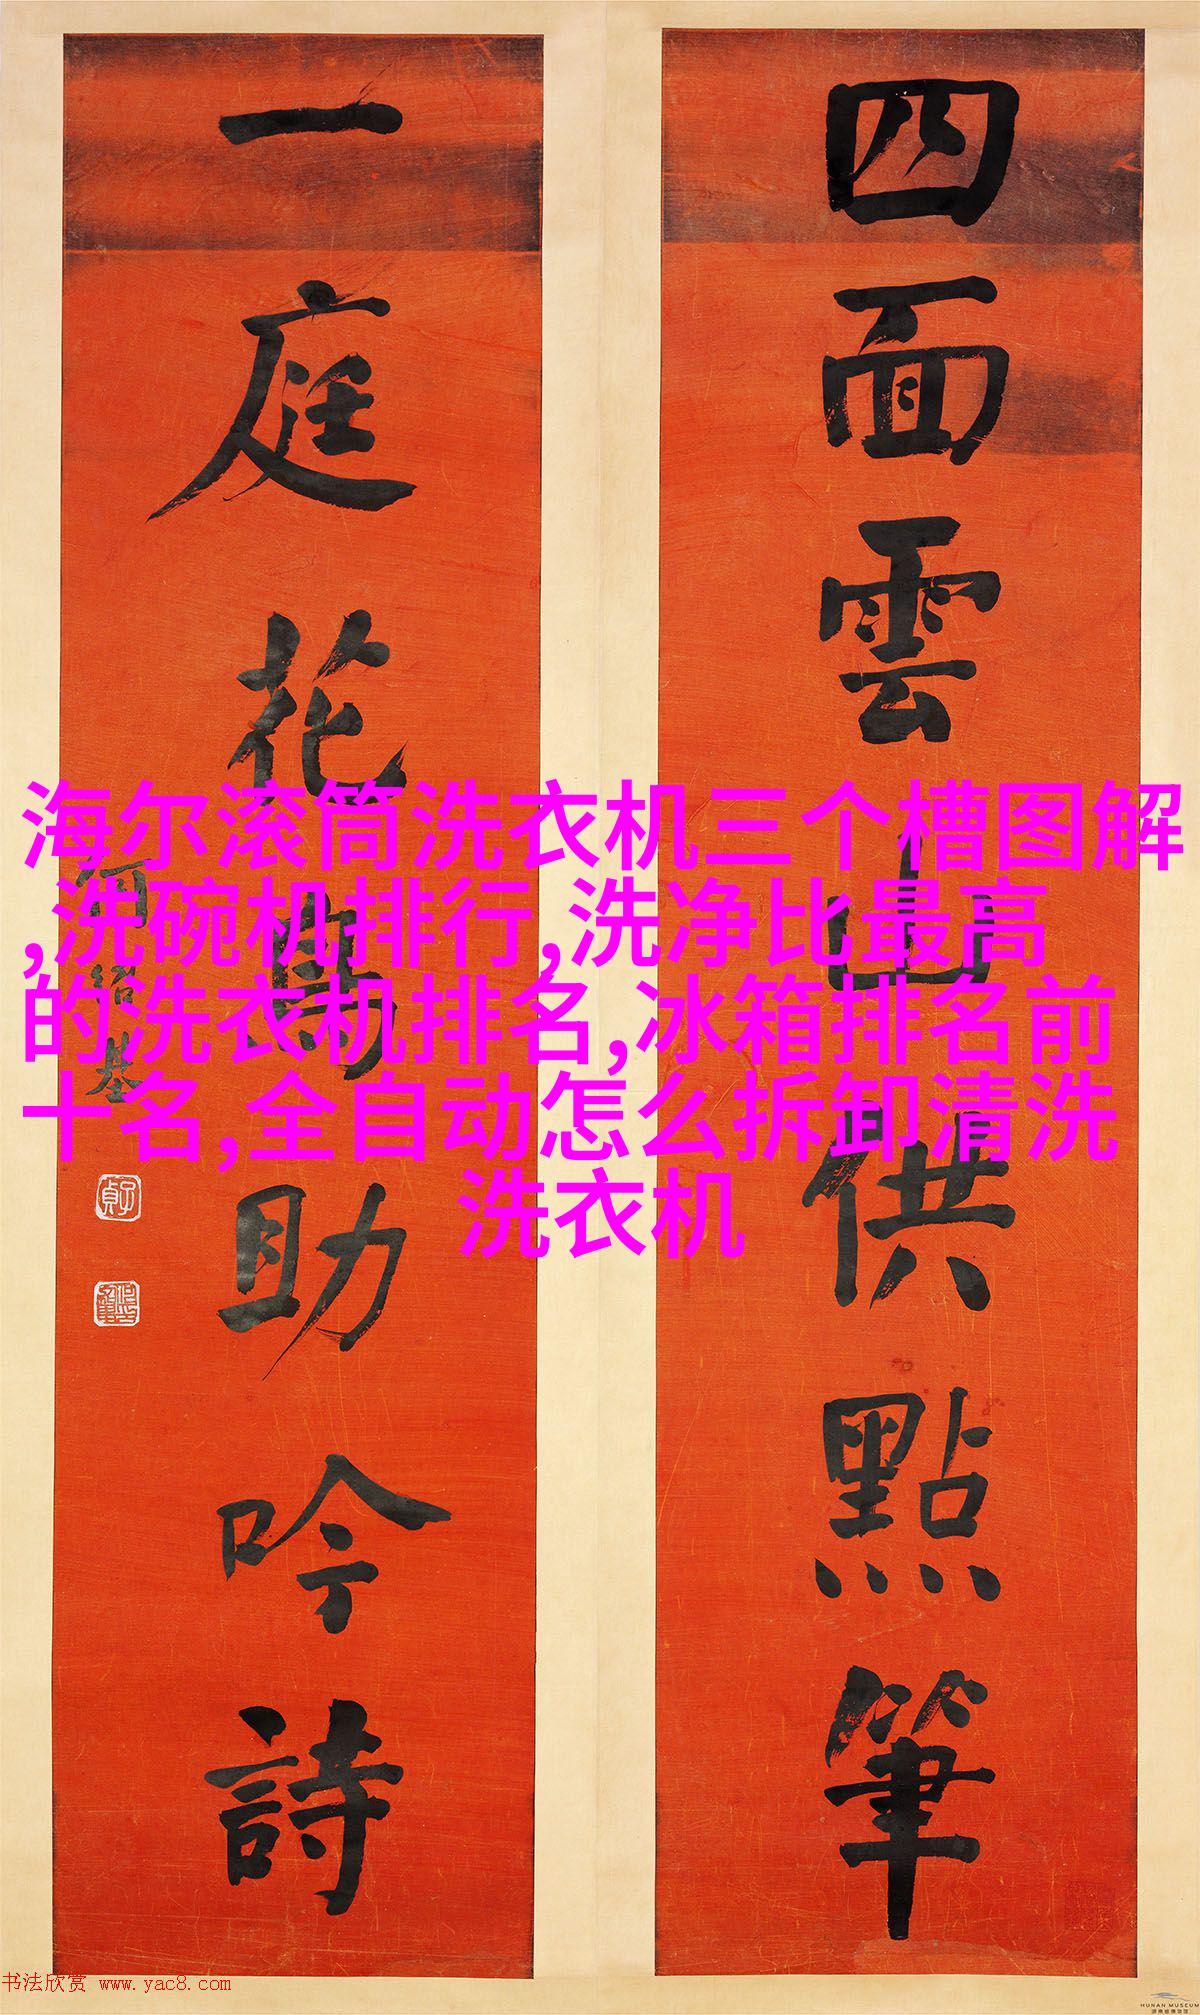 四面雲山供點筆
一庭花鳥助吟詩
何紹基
子貞
海尔滚筒洗衣机三个槽图解
,洗碗机排行,洗净比最高
的洗衣机排名,冰箱排名前
十名,全自动怎么拆卸清洗
洗衣机
书法欣赏 www.yac8.com
HUNAN MUSEUM